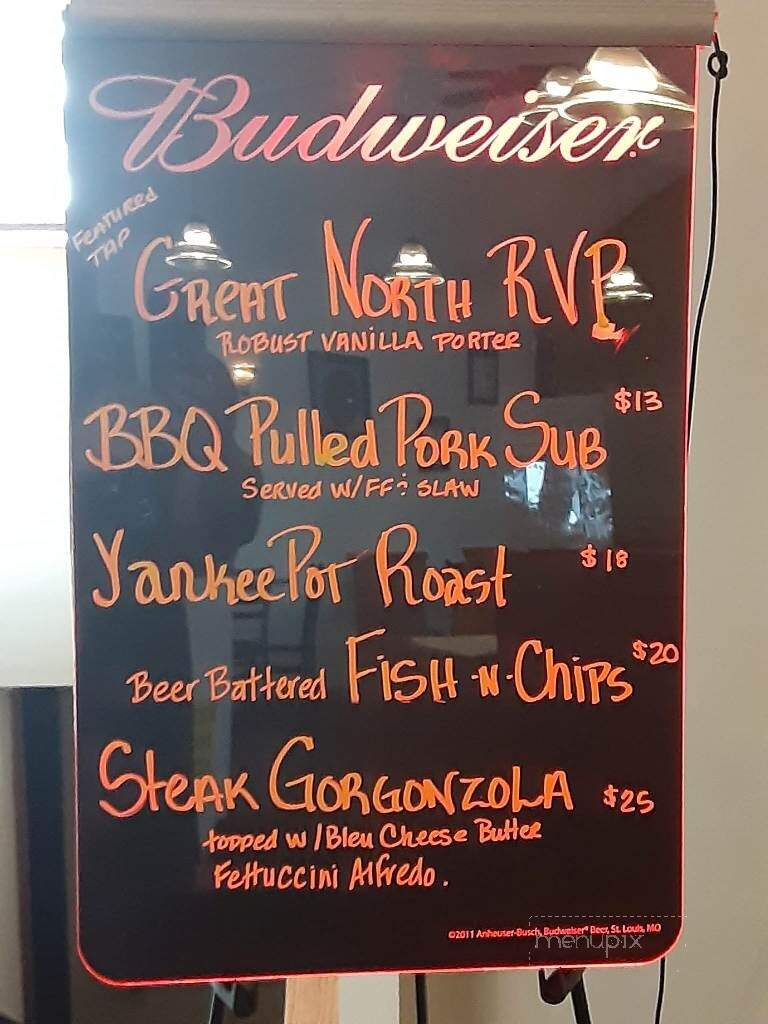 Budweiser
FEATURED
TAP
GREAT NORTH RVP
ROBUST VANILLA PORTER
BBQ Pulled PORK SUB $13
Served W/FF & SLAW
Yankee Pot Roast $18
Beer Battered FISH-N-Chips $20
Steak GORGONZOLA $25
topped w/Bleu Cheese Butter
Fettuccini Alfredo.
©2011 Anheuser-Busch, Budweiser® Beer, St. Louis, MO
menupix